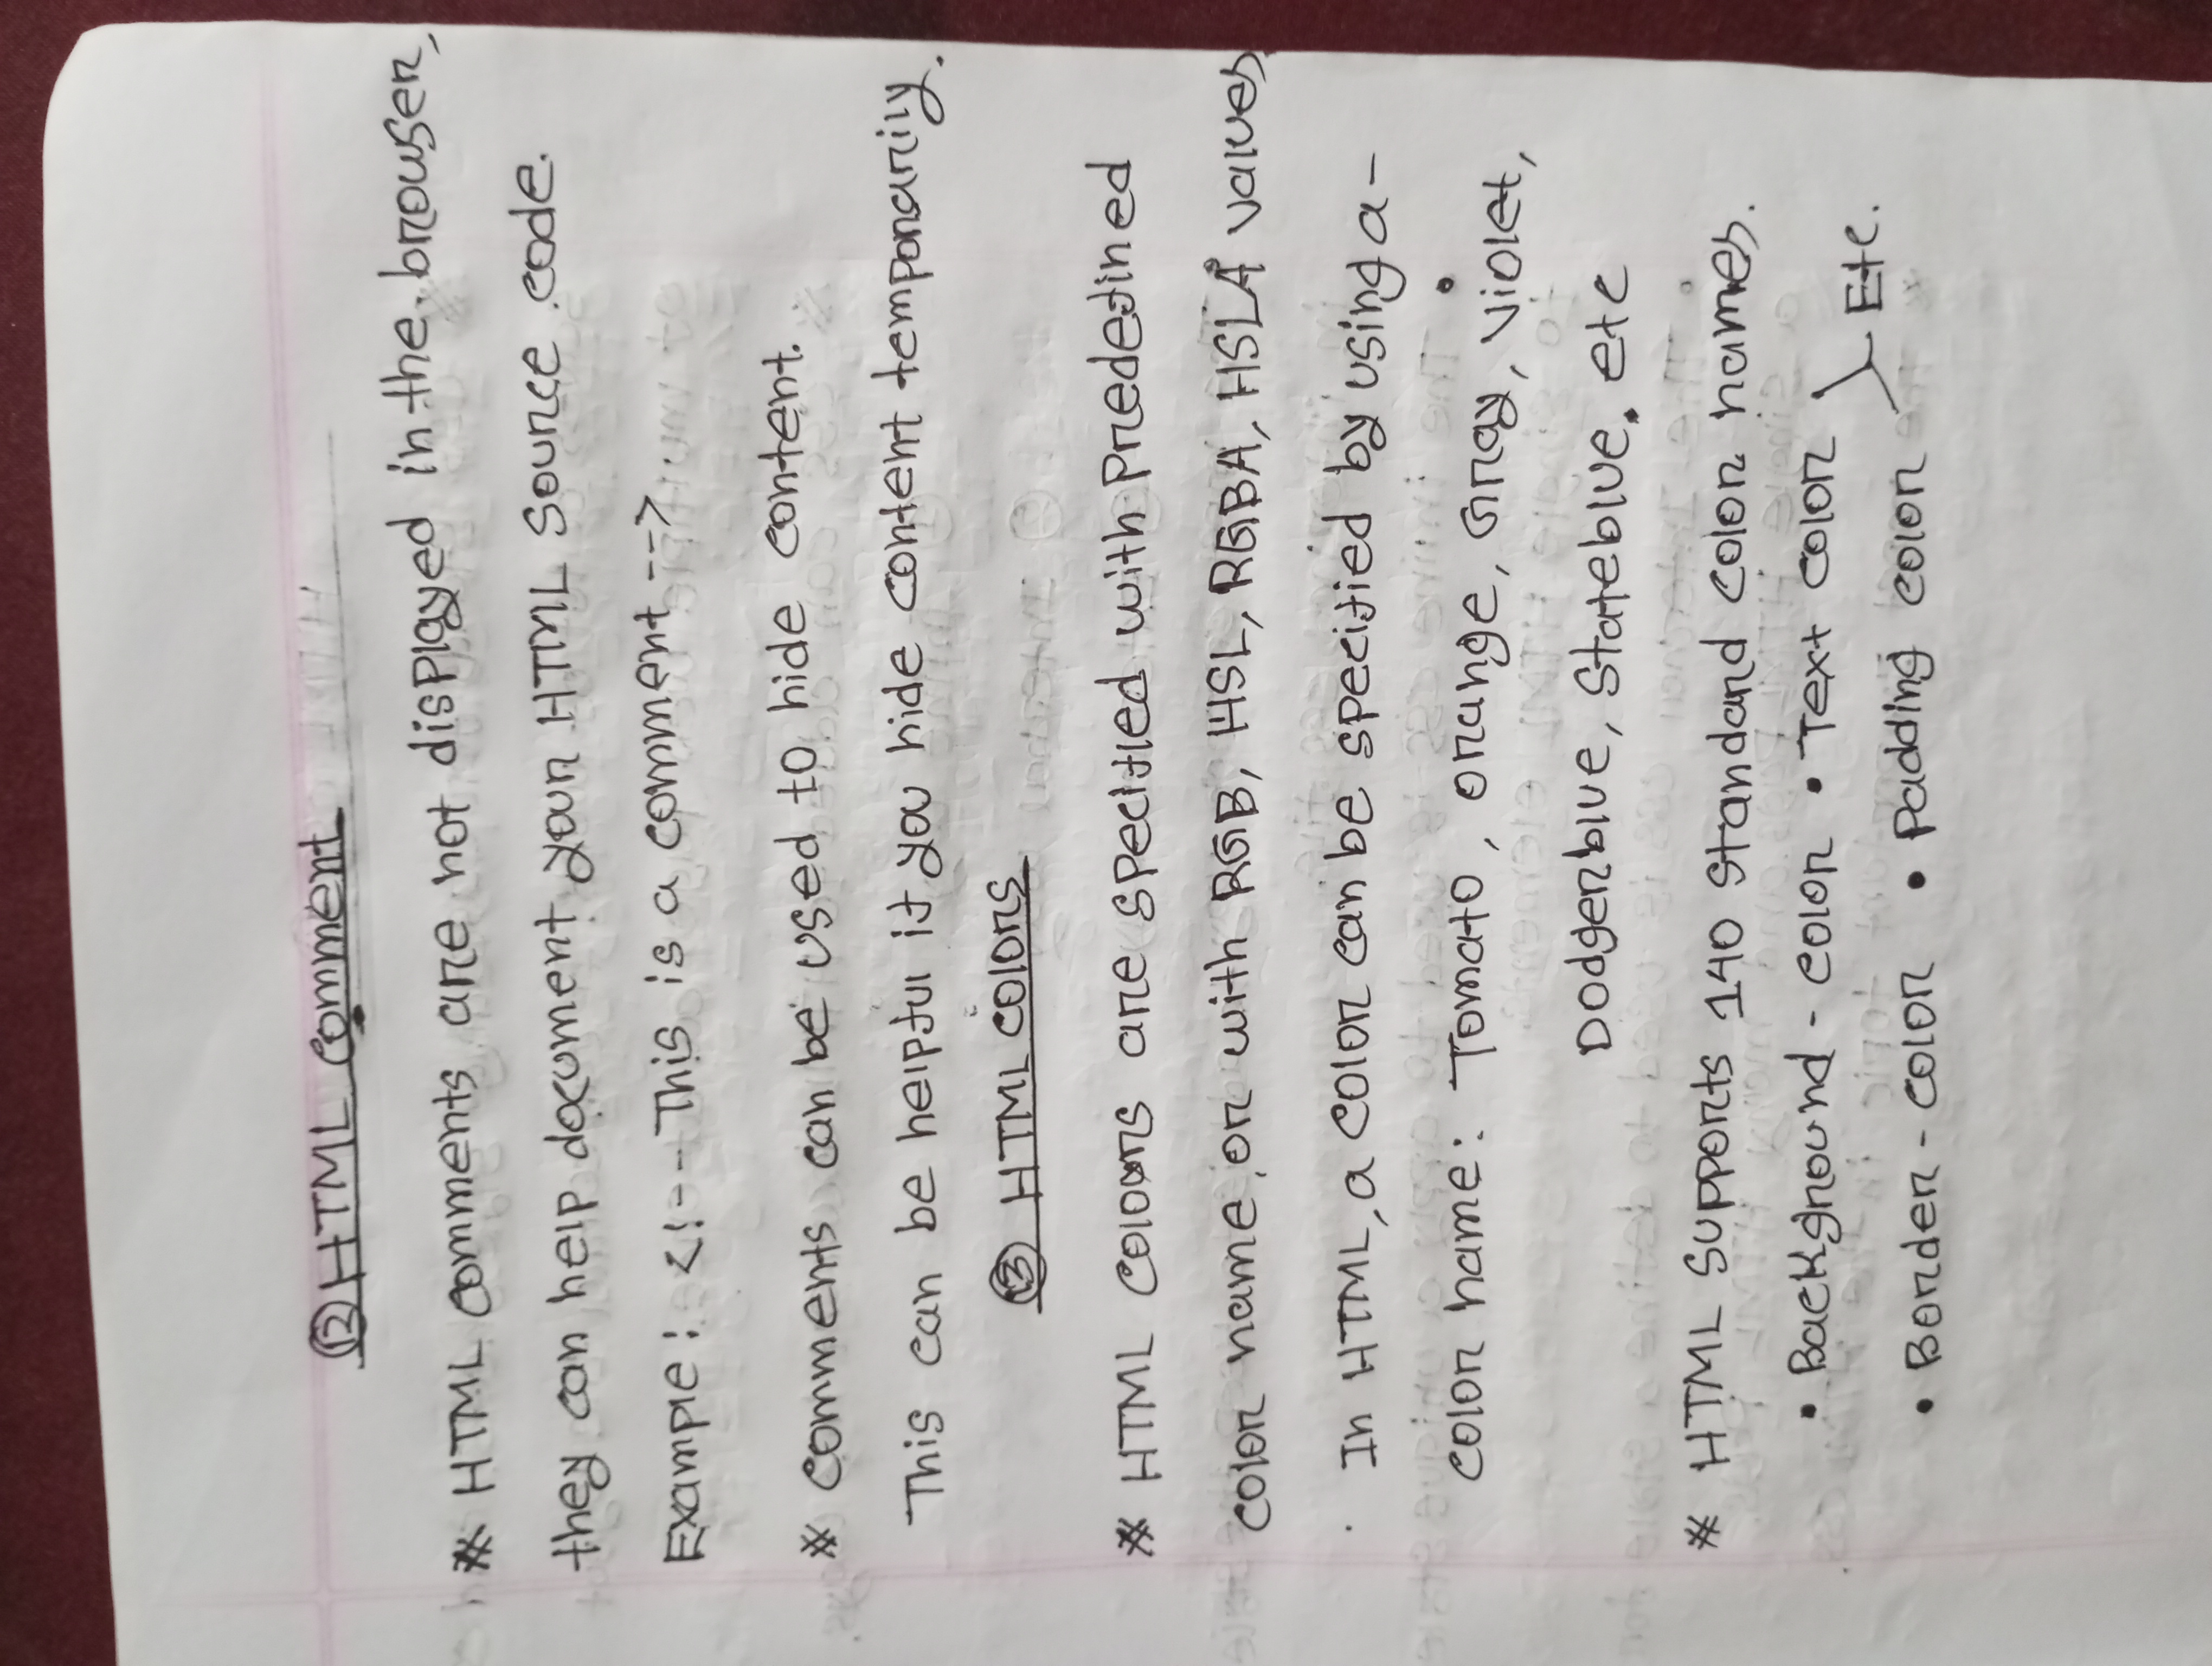 ⑫ HTML comment
* HTML comments are not displayed in the browser,
they can help document your HTML source code.
Example: <!-- This is a comment -->.
* comments can be used to hide content.
This can be helpful if you hide content temporarily.
⑬ HTML colors
* HTML colours are specified with predefined
color name, or with RGB, HSL, RGBA, HSLA values
In HTML, a color can be specified by using a-
color name: Tomato, orange, Gray, Violet,
Dodgerblue, Stateblue. etc
* HTML supports 140 standard color names.
• Background - color • Text color
Etc.
• Border - color • Padding color